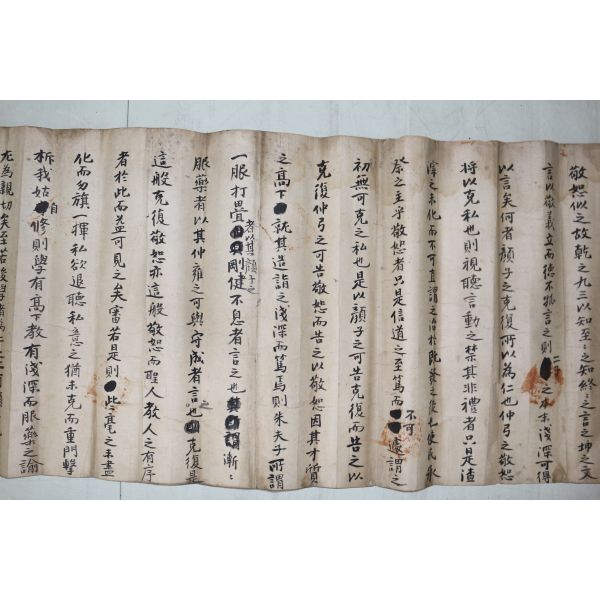 敬恕似之故乾之九三以知至知終之言之坤之文
言以敬義立而德不孤言之則二者之本末淺深可得
以言矣何者顔子之克復所以為仁也仲弓之敬恕
將以克私也則視聽言動之禁其非禮者只是渣
滓之未化而不可直謂之治於既發之後也使民承
祭之主乎敬恕者只是信道之至篤而不可遽謂之
初無可克之私也是以顔子之可告克復而告之以
克復仲弓之可告敬恕而告之以敬恕因其才質
之高下就其造詣之淺深而篤焉則朱夫子所謂
一服打疊者以其顔子之剛健不息者言之也漸漸
服藥者以其仲雍之可與守成者言之也克復是
這般克復敬恕亦這般敬恕而聖人教人之有序
者於此而益可見之矣審若是則些毫之未盡
化而勿旗一揮私欲退聽私意之猶未克而重門擊
柝我姑自修則學有高下教有淺深而服藥之諭
尤為親切矣至若後學者